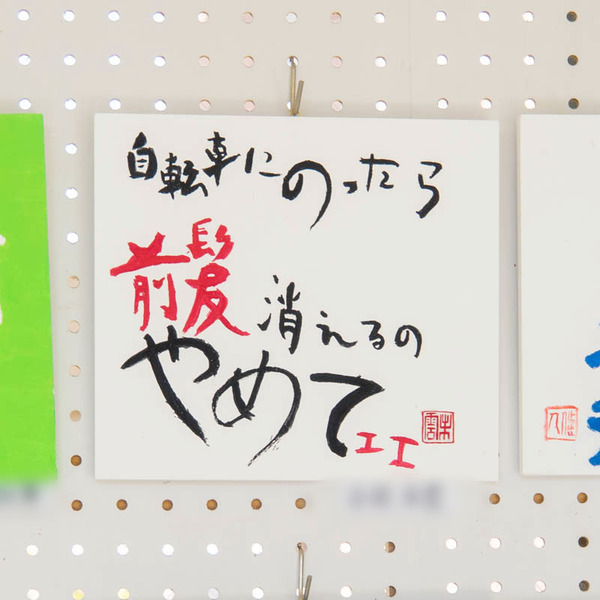 自転車にのったら
前髪消えるの
やめてエエ